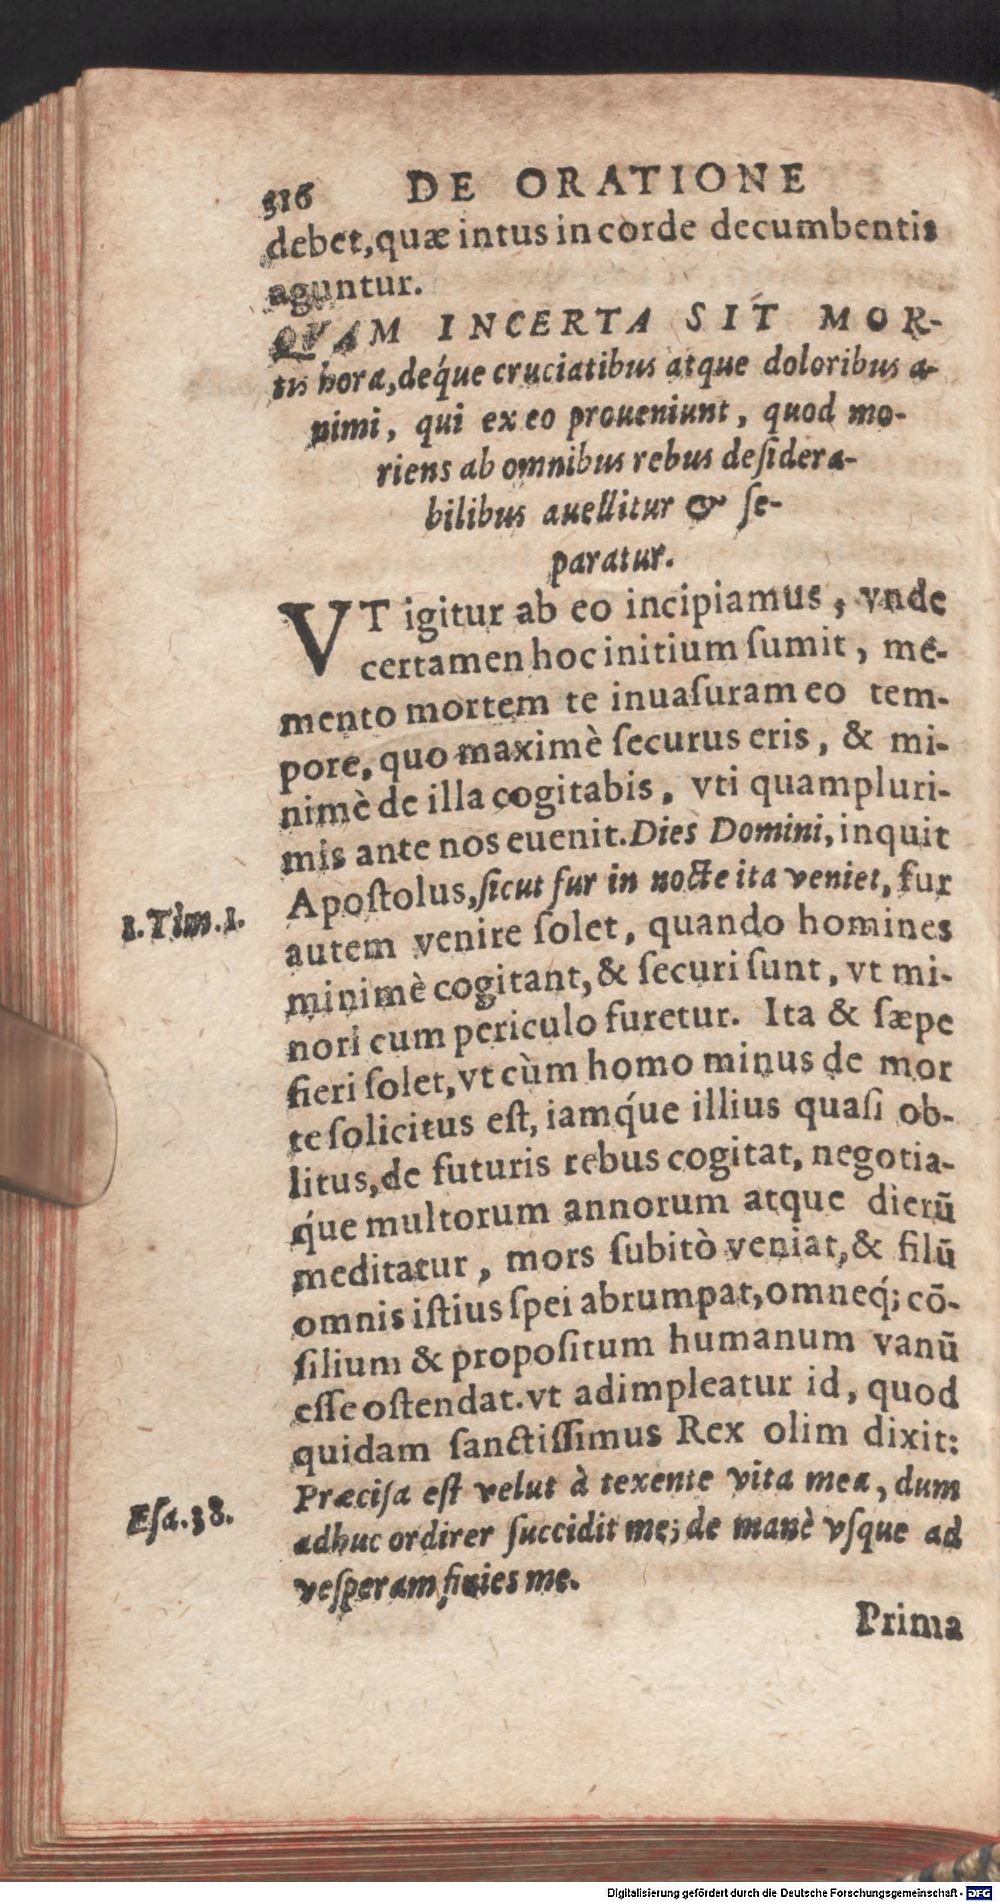 316 DE ORATIONE
debet, quæ intus in corde decumbentis
aguntur.
QVAM INCERTA SIT MOR-
tis hora, deq́ue cruciatibus atque doloribus a-
nimi, qui ex eo proueniunt, quod mo-
riens ab omnibus rebus deſidera-
bilibus auellitur & ſe-
paratur.
VT igitur ab eo incipiamus, vnde
certamen hoc initium ſumit, me-
mento mortem te inuaſuram eo tem-
pore, quo maximè ſecurus eris, & mi-
nimè de illa cogitabis, vti quampluri-
mis ante nos euenit. Dies Domini, inquit
Apoſtolus, ſicut fur in nocte ita veniet, fur
1. Tim. 1.
autem venire ſolet, quando homines
minimè cogitant, & ſecuri ſunt, vt mi-
nori cum periculo furetur. Ita & ſæpe
fieri ſolet, vt cùm homo minus de mor
te ſolicitus eſt, iamq́ue illius quaſi ob-
litus, de futuris rebus cogitat, negotia-
q́ue multorum annorum atque dierũ
meditatur, mors ſubitò veniat, & filũ
omnis iſtius ſpei abrumpat, omneq́; cõ-
ſilium & propoſitum humanum vanũ
eſſe oſtendat. vt adimpleatur id, quod
quidam ſanctiſſimus Rex olim dixit:
Præciſa eſt velut à texente vita mea, dum
Eſa. 38.
adhuc ordirer ſuccidit me; de manè vſque ad
veſperam finies me.
Prima
Digitalisierung gefördert durch die Deutsche Forschungsgemeinschaft - DFG